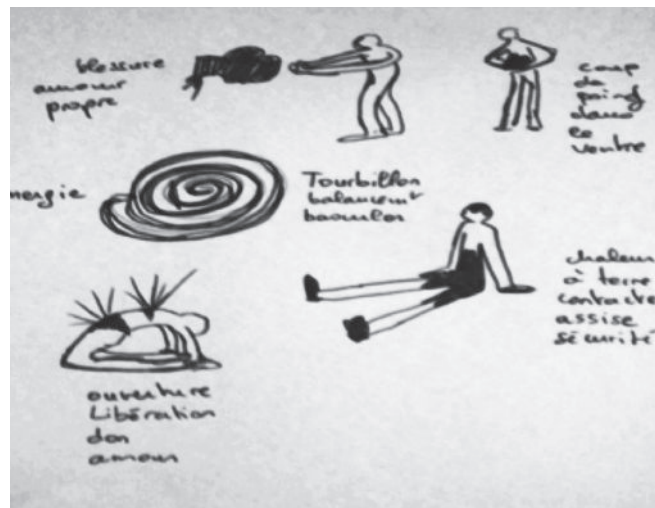 blessure
amour
propre
coup
de
poing
dans
le
ventre
nergie
Tourbillon
balancement
chaleur
à terre
contacte
assise
sécurité
ouverture
Libération
don
amour